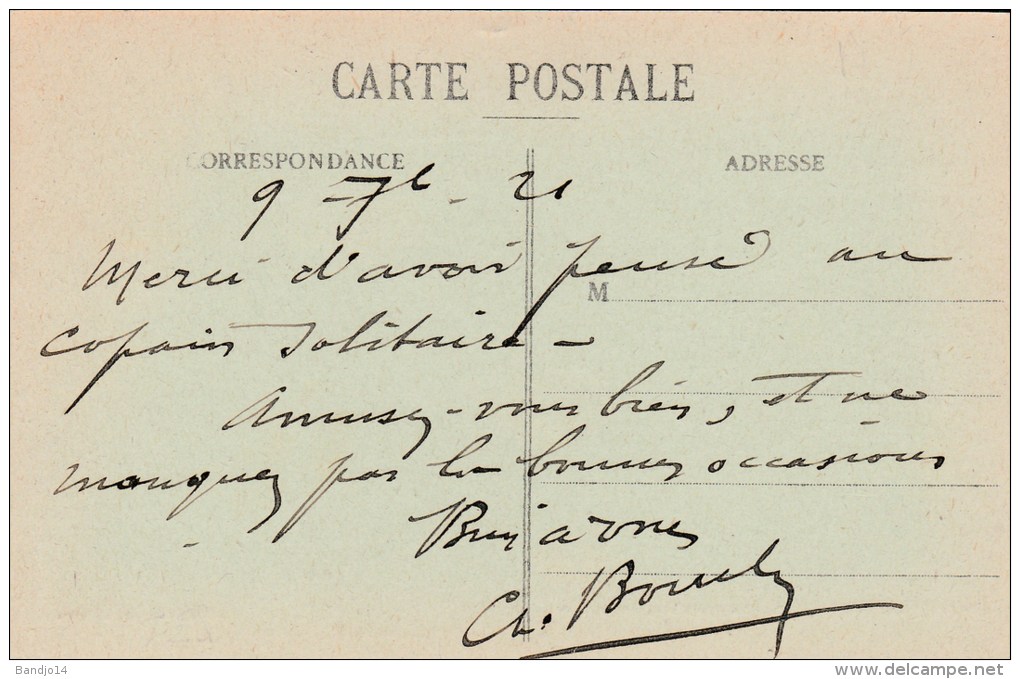 CARTE POSTALE
CORRESPONDANCE
ADRESSE
9 7b - 21
Merci d'avoir pensé au
M
copain solitaire -
Amusez-vous bien, et ne
manquez pas les bonnes occasions
Bien à vous
Ch.
Bandjo14
www.delcampe.net